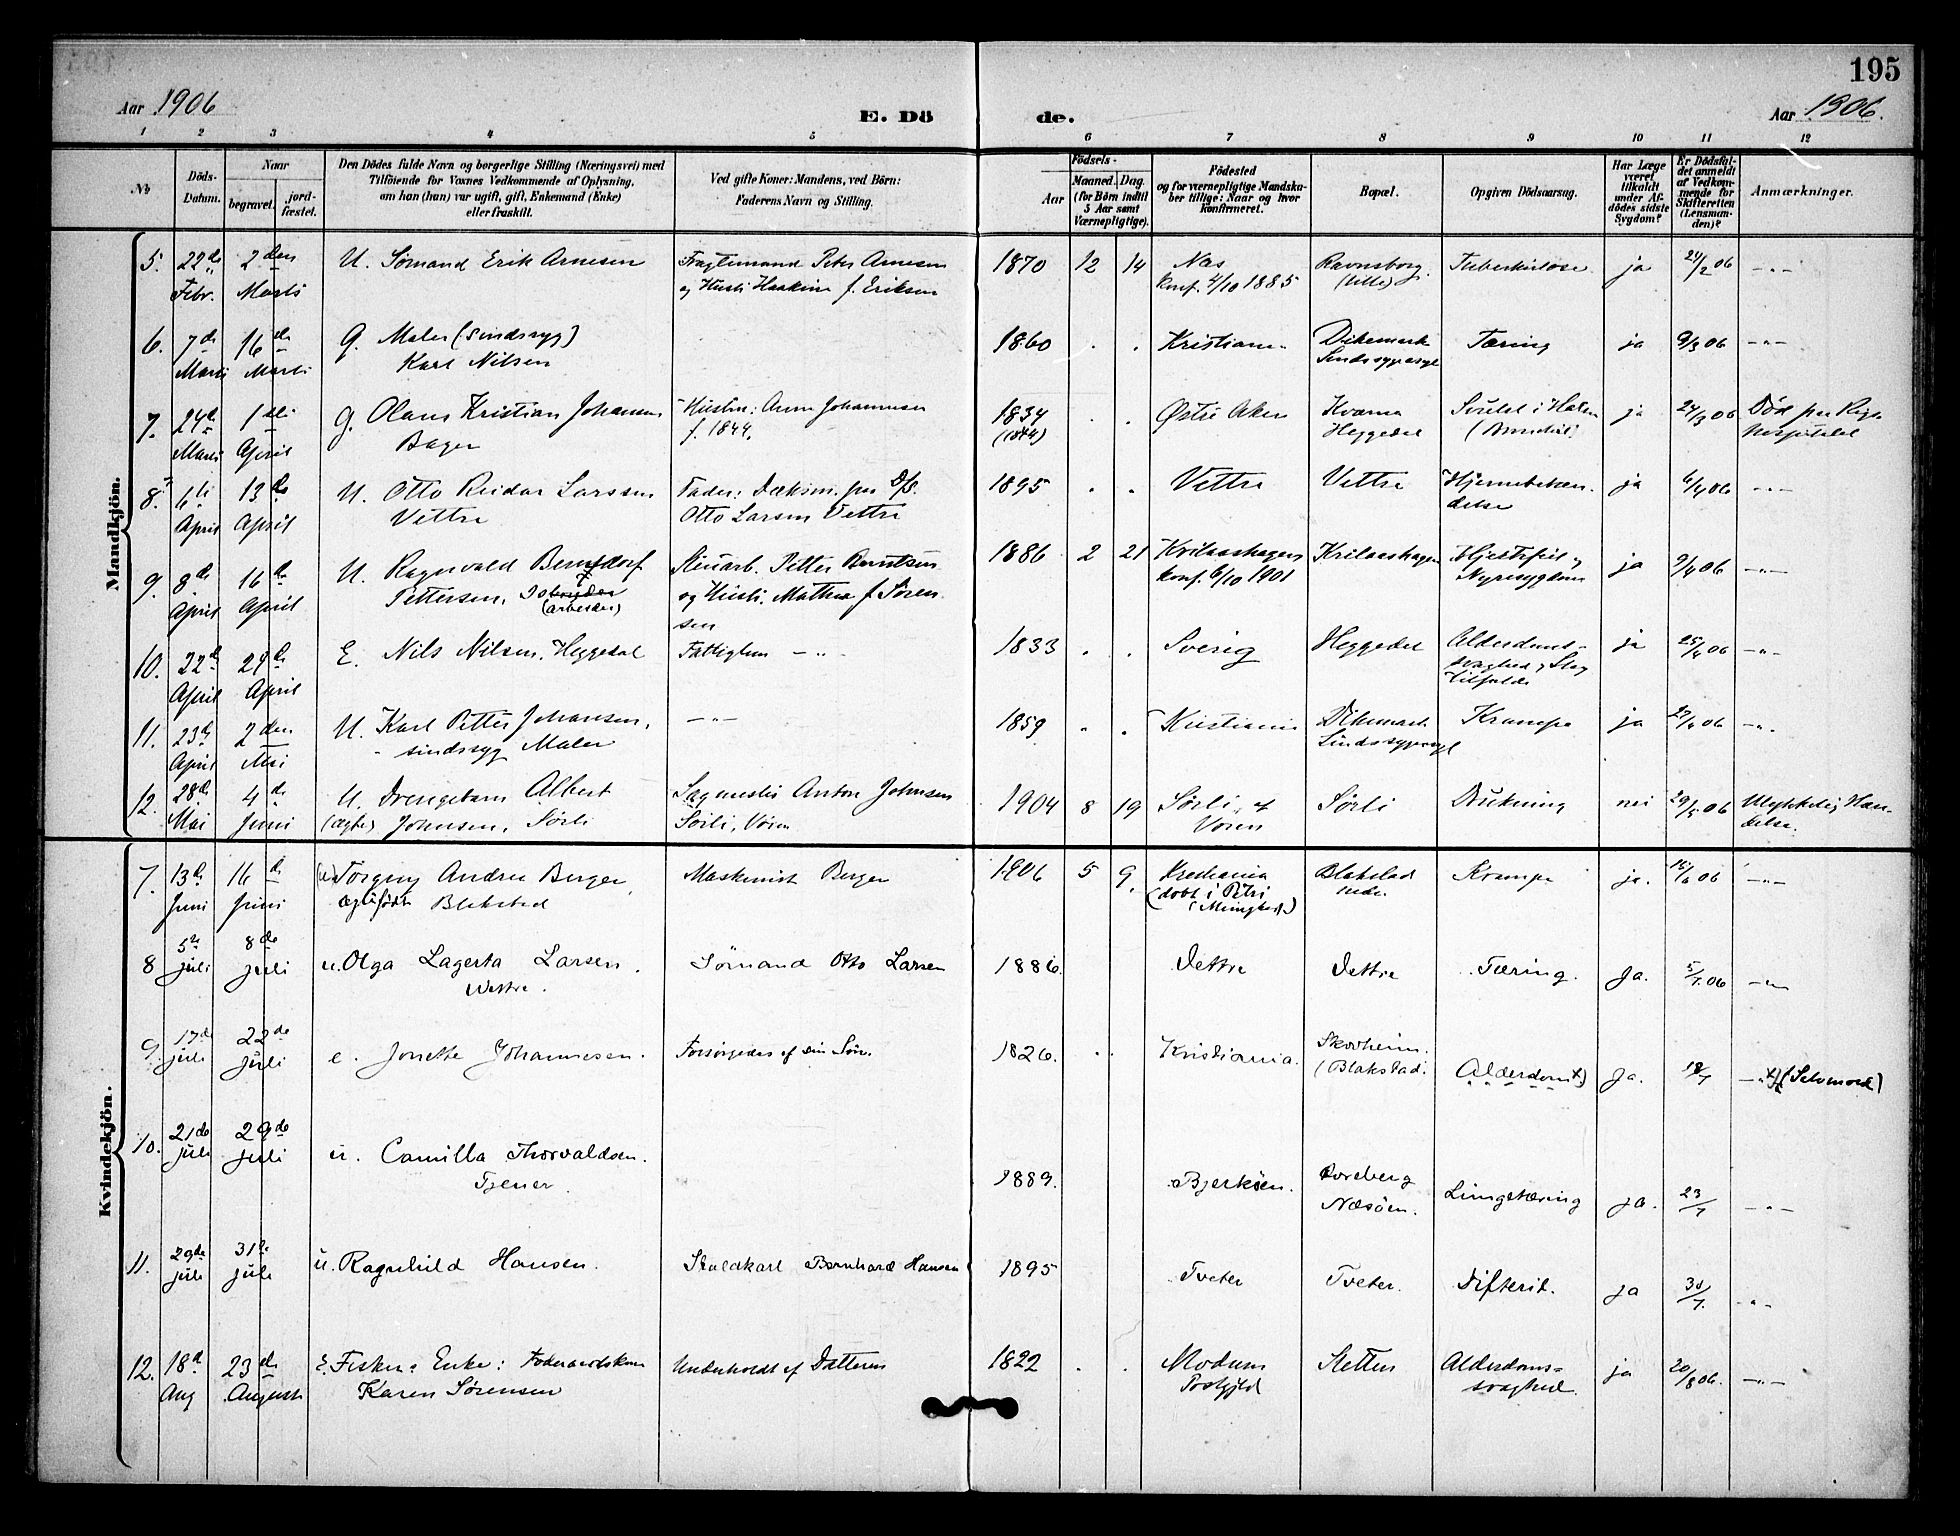 195
Aar 1906
E. Dö
de.
Aar 1906.
1 2 3 4 5 6 7 8 9 10 11 12
No
Döds-
Datum.
Naar
begravet.
jord-
fæstet.
Den Dödes fulde Navn og borgerlige Stilling (Næringsvei) med
Tilföiende for Voxnes Vedkommende af Oplysning,
om han (hun) var ugift, gift, Enkemand (Enke)
eller fraskilt.
Ved gifte Koner: Mandens, ved Börn:
Faderens Navn og Stilling.
Födsels-
Aar
Maaned. Dag.
(for Börn indtil
5 Aar samt
Værnepligtige).
Födested
og for værnepligtige Mandska-
ber tillige: Naar og hvor
Konfirmeret.
Bopæl.
Opgiven Dödsaarsag.
Har Læge
været
tilkaldt
under Af-
dödes sidste
Sygdom?
Er Dödsfal-
det anmeldt
af Vedkom-
mende for
Skifteretten
(Lensman-
den)?
Anmærkninger.
Mandkjön.
5. 22de 2den U. Sömand Erik Arnesen Fragtemand Peter Arnesen 1870 12 14 Næs Ravnsborg Tuberkulose ja 24/2 06 -"-
Febr. Marts og Hustr. Haakine f. Eriksen konf. 4/10 1885 (Lille)
6. 7de 16de G. Maler (sindssyg) 1860 . . Kristiania Dikemark Tæring ja 9/3 06 -"-
Marts Marts Karl Nilsen Sindssygeasyl
7. 24de 1ste G. Olaus Kristian Johansen Hustru: Anne Johannesen 1834 . . Østre Aker Kværna i Halsen ja 24/3 06 Død paa Rigs-
Marts April Bager f. 1844. (1844) Heggedal hospitalet
8. 6te 13de U. Otto Reidar Larssen Fader: Dæksm. paa D/S. 1895 . . Vettre Vettre Hjernebetæn- ja 6/4 06 -"-
April April Vettre Otto Larsen Vettre delse
9. 8de 16de U. Ragnvald Berntdorf Petter Berntsen 1886 2 21 Krilaashagen Krilaashagen Hjertefeil og ja 9/4 06 -"-
April April Pettersen, (arbeider) og Hustr. Mathea f. Sören- konf. 6/10 1901 Nyresygdom
sen
10. 22de 29de E. Nils Nilsen, Heggedal Fattiglem -"- 1833 . . Sverig Heggedal Alderdoms- ja 25/4 06 -"-
April April svaghed, Slag
tilfælde
11. 23de 2den U. Karl Petter Johansen, -"- 1859 . . Kristiania Dikemark Krampe ja 27/4 06 -"-
April Mai sindssyg Maler Sindssygeasyl
12. 28de 4de U. Drengebarn Albert Sagmester Anton Johnsen 1904 8 19 Sørli, af Sørli Drukning nei 29/5 06 Ulykkelig Hæn-
Mai Juni (ægte) Johnsen, Sørli Sørli, Vøien Vøien delse.
Kvindekjön.
7. 13de 16de (u) Torgny Andrea Berger, Maskinist Berger 1906 5 9. Kristiania Blakstad Krampe ja. 15/6 06 -"-
Juni Juni ægtefødt Blakstad (döbt i Petri nedre.
Menighed)
8 5te 8de u. Olga Lagerta Larsen. Sömand Otto Larsen 1886. Vettre Vettre Tæring. Ja. 5/7.06 -"-
juli juli Wettre.
9. 17de 22de e. Jonette Johannesen. Forsörgedes af sin Sön. 1826. . . Kristiania. Skovheim. Alderdom x) Ja. 18/7 -"- x) (Selvmord)
juli juli (Blakstad.
10. 21de 29de u. Camilla Thorvaldsen. 1889. Bjerköen. Næsöen. Lungetæring ja. 23/7 -"-
juli juli Tjener.
11. 29de 31te u. Ragnhild Hansen. Staldkarl Bernhard Hansen 1895 Tveter Tveter. Difterit. ja 30/7. -"-
juli juli
12. 18de 23de E. Fisker: Enke: Foderaadskone Underholdt af Datteren 1822 . . Modum Sletten Alderdoms- ja 20/8 06. -"-
Aug August Karen Sörensen Prestgjeld svaghed.